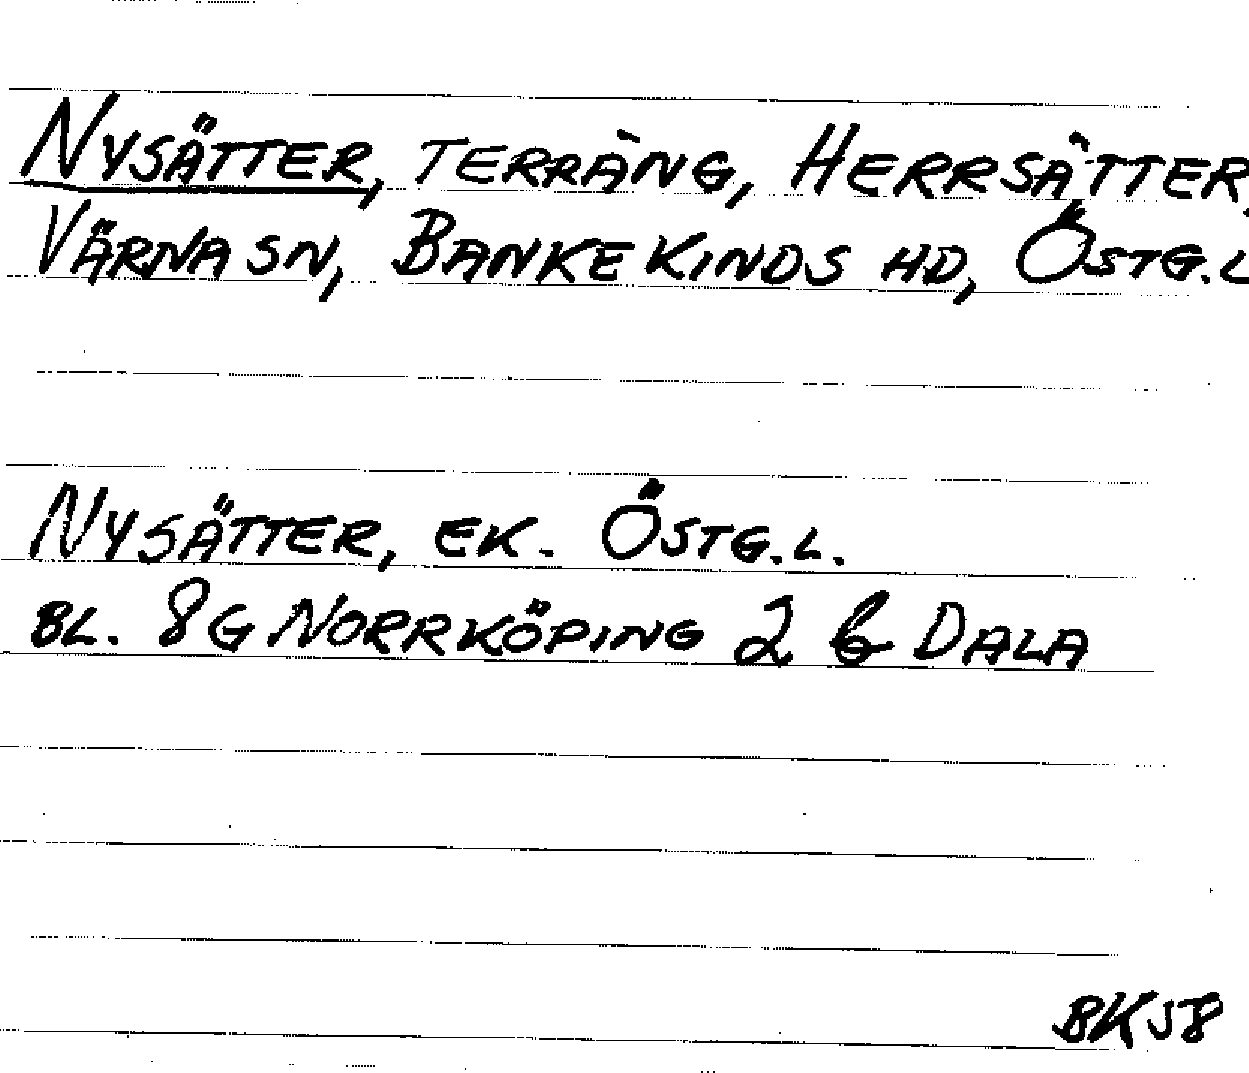 NYSÄTTER, TERRÄNG, HERRSÄTTER,
VÄRNA SN, BANKEKINDS HD, ÖSTG.L
NYSÄTTER, EK. ÖSTG.L.
BL. 8G NORRKÖPING 2 b DALA
BK58